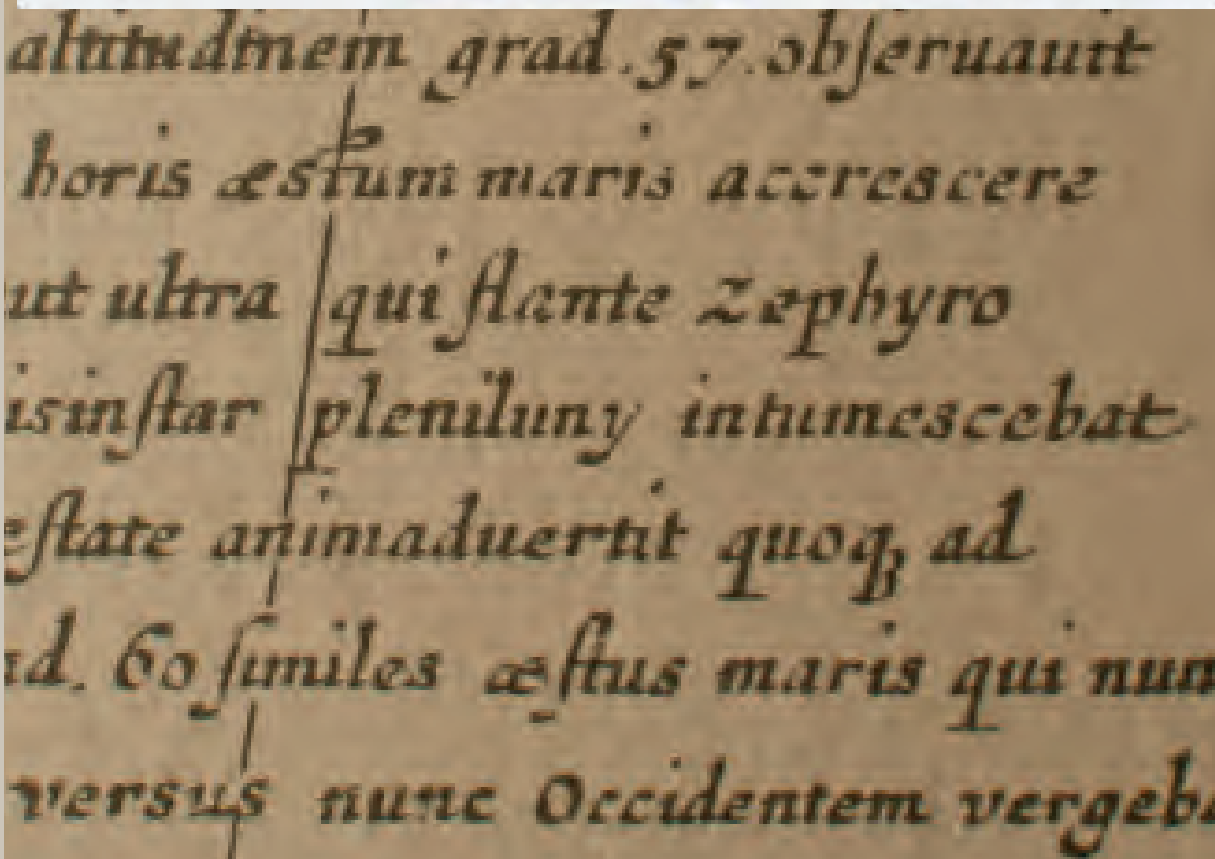 altitudinem grad. 57. obſeruauit
horis æstum maris accrescere
ut ultra qui flante Zephyro
is inſtar pleniluny intumescebat
eſtate animaduertit quoqꝫ ad
ad. 60 ſimiles æſtus maris qui nun
versus nunc Occidentem vergeba